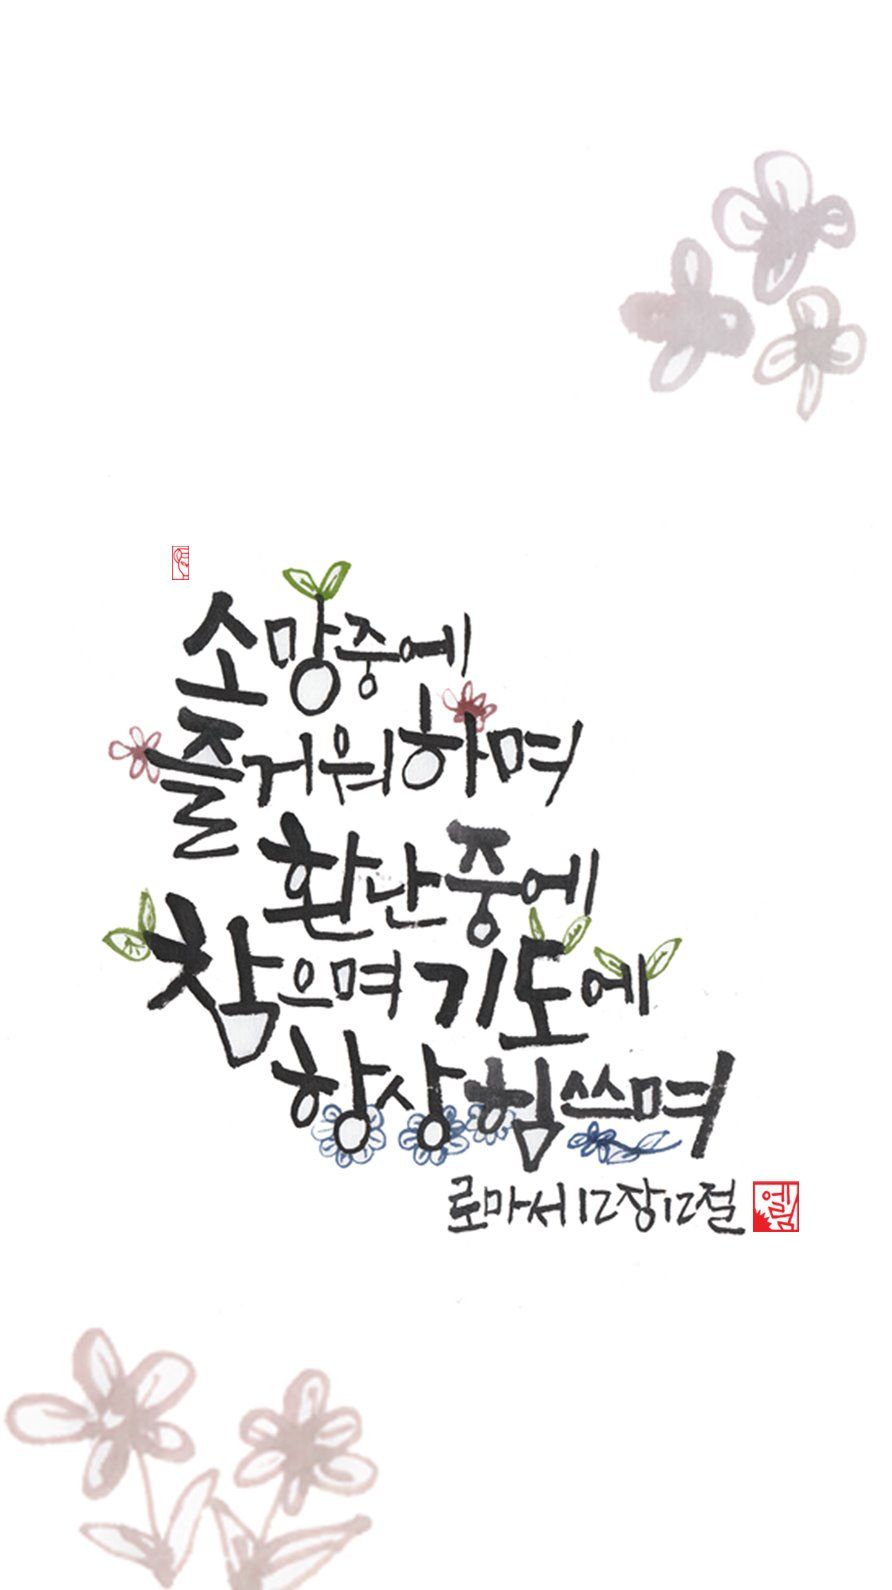 소망중에
즐거워하며
환난중에
참으며 기도에
항상 힘쓰며
로마서12장12절
예림